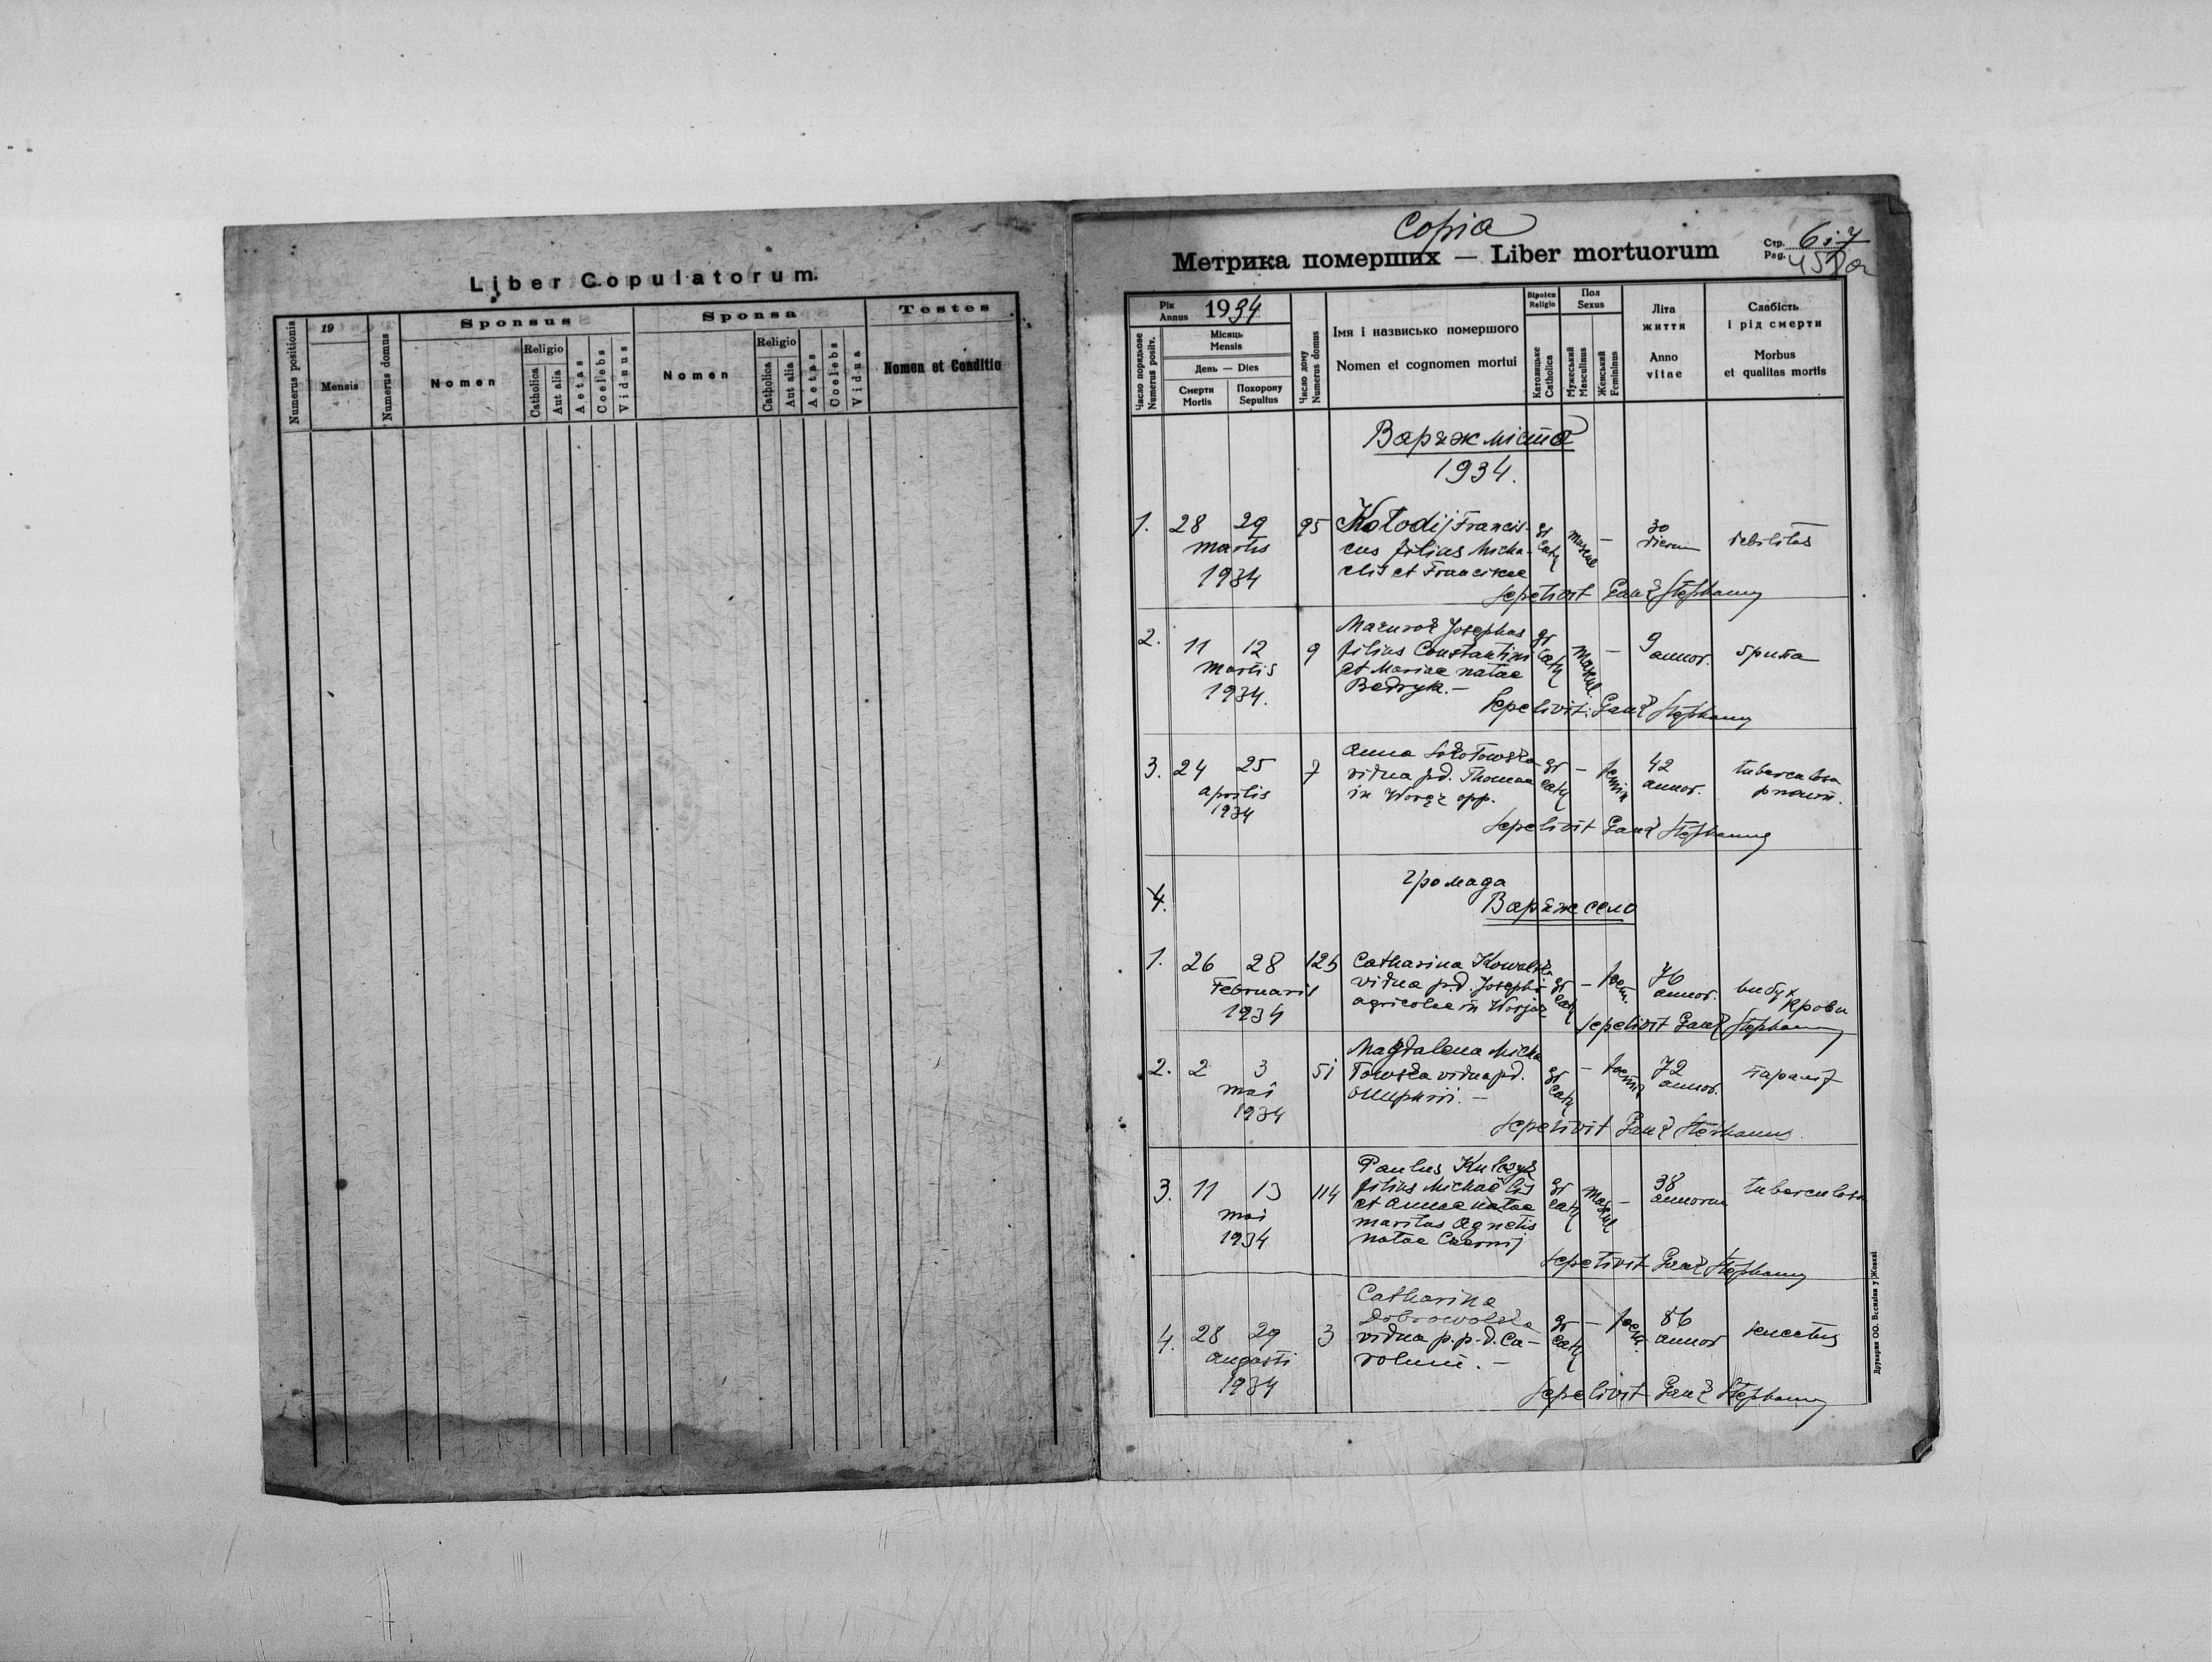 Liber Copulatorum.
Numerus positionis
19
Mensis
Numerus domus
Sponsus
Nomen
Religio
Catholica
Aut alia
Aetas
Coelebs
Viduus
Sponsa
Nomen
Religio
Catholica
Aut alia
Aetas
Coelebs
Vidua
Testes
Nomen et Conditio
Copia
Метрика померших — Liber mortuorum
Стр. 6 i 7
Pag.
Рік
Annus 1934
Число порядкове
Numerus positv.
Місяць
Mensis
День — Dies
Смерти
Mortis
Похорону
Sepultus
Число дому
Numerus domus
Імя і назвисько помершого
Nomen et cognomen mortui
Віроісп
Religio
Католицьке
Catholica
Пол
Sexus
Мужеський
Masculinus
Женський
Femininus
Літа
життя
Anno
vitae
Слабість
і рід смерти
Morbus
et qualitas mortis
Варяж місто
1934.
1. 28 29 95 Kołodij Francis-
cus filius Micha-
elis et Franciscae
martis
1934
gr cath mascul — 30 dierum debilitas
sepelivit Ganź Stephanus
2. 11 12 9 Mazurok Josephus
filius Constantini
et Mariae natae
Bedryk. —
martis
1934.
gr cath mascul. — 9 annor. грипа
Sepelivit: Ganź Stephanus
3. 24 25 7 Anna Sokołowska
vidua p.d. Thomae
in Waręż opp.
aprilis
1934
gr cath — femin 42 annor. tuberculosa
sepelivit Ganź Stephanus
4.
громада
Варяж село
1. 26 28 125 Catharina Kowalska
vidua p.d. Josephi
agricolae in
Februarii
1934
gr cath — foem. 76 annor. вибух крови
sepelivit Ganź Stephanus
2. 2 3 51 Magdalena Micha
łowska vidua p.d.
Onuphrii. —
mai
1934
gr cath — foemin 72 annor.
sepelivit Ganź Stephanus.
3. 11 13 114 Paulus Kulczyk
filius Michaelis
et Annae natae
maritus Agnetis
natae Czornij
mai
1934
gr cath mascul — 38 annorum tuberculosa
sepelivit Ganź Stephanus
4. 28 29 3 Catharina
Dobrowolska
vidua p.p.d. Ca-
rolumi. —
augusti
1934
gr cath — foem. 86 annor senectus
sepelivit Ganź Stephanus
Друкарня ОО. Василіян у Жовкві